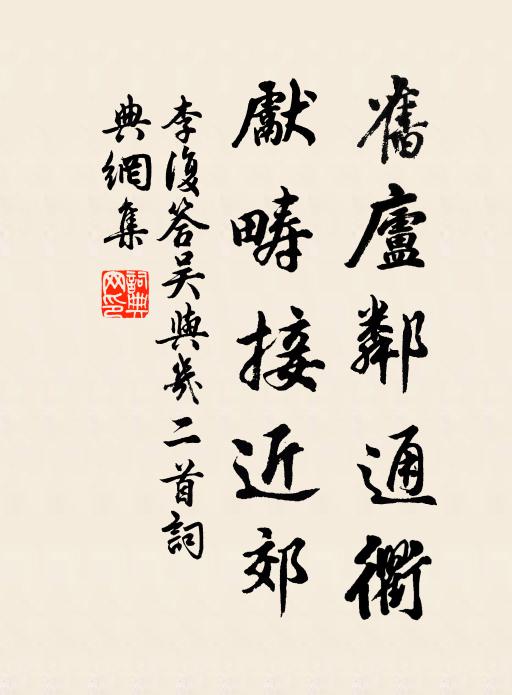 舊廬鄰通衢
獻疇接近郊
李復答吳與幾二首詞
典網集
詞典網印